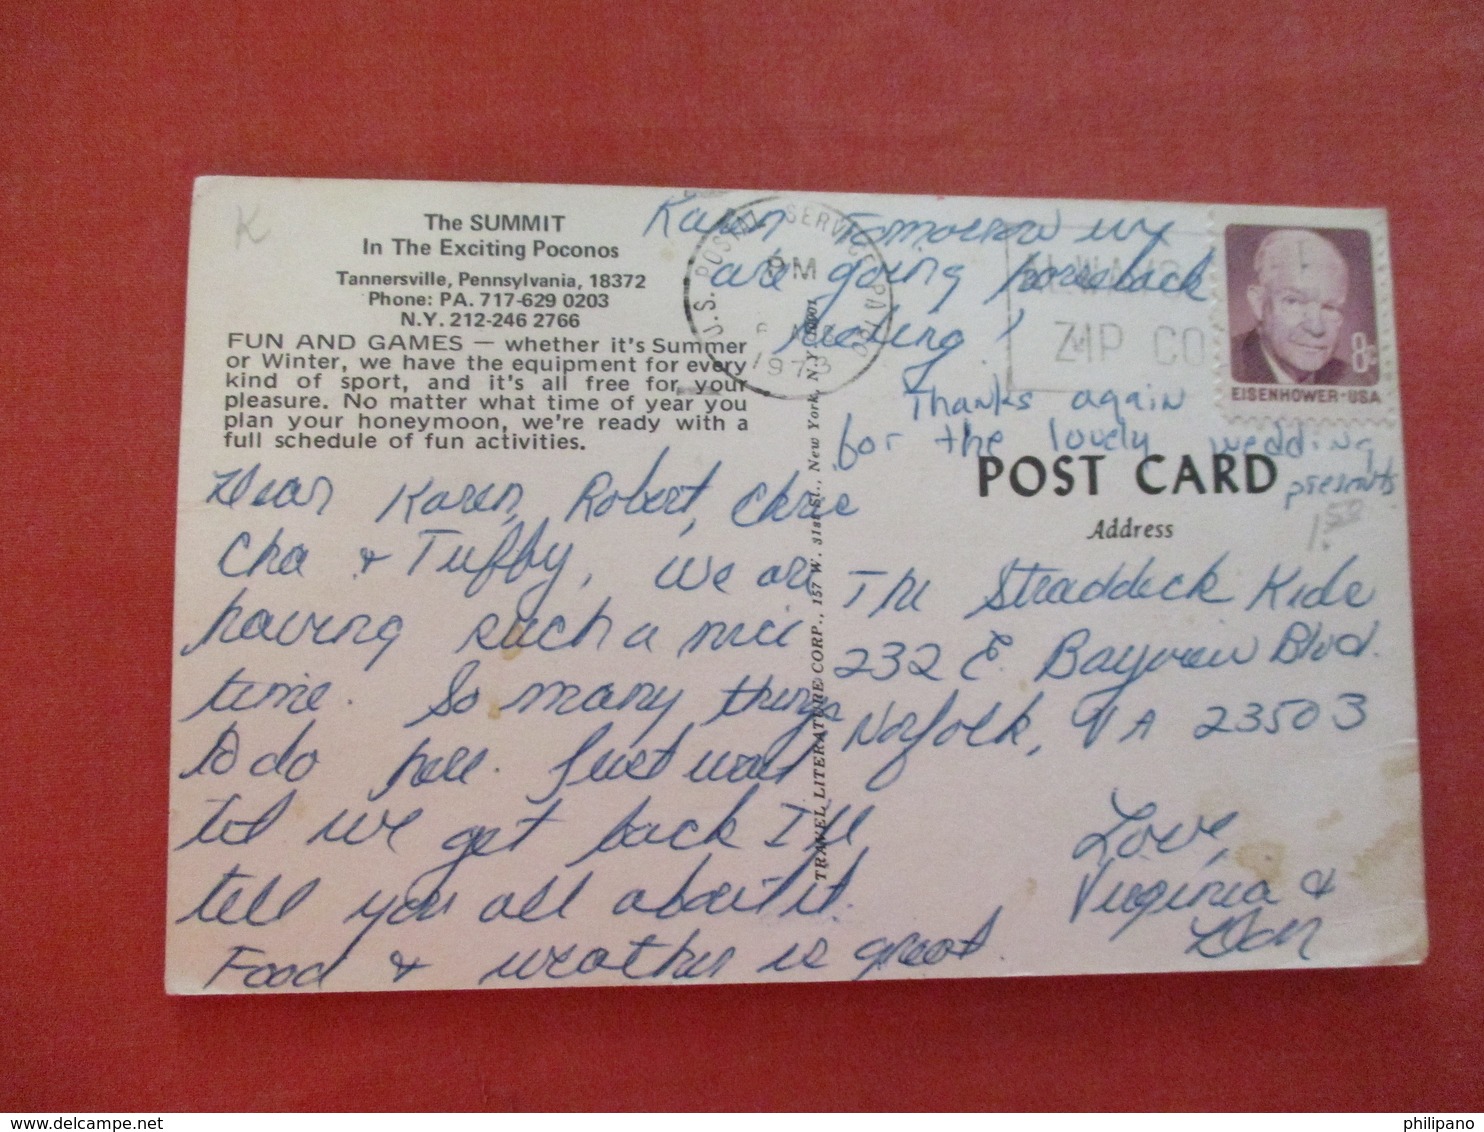 K
The SUMMIT
In The Exciting Poconos
Tannersville, Pennsylvania, 18372
Phone: PA. 717-629 0203
N.Y. 212-246 2766
FUN AND GAMES — whether it's Summer
or Winter, we have the equipment for every
kind of sport, and it's all free for your
pleasure. No matter what time of year you
plan your honeymoon, we're ready with a
full schedule of fun activities.
Dear Karen, Robert, Chrie
Cha & Tuffy, We are
having such a nice
time. So many things
to do here. Just wait
til we get back I'll
tell you all about it.
Food & weather is great.
Karen Tomorrow we
are going horseback
riding!
Thanks again
for the lovely wedding
presents
U.S. POSTAL SERVICE PA
PM
1973
ZIP CO
8c
EISENHOWER·USA
POST CARD
Address
1.50
The Straddeck Kids
232 E. Bayview Blvd.
Norfolk, VA 23503
Love,
Virginia &
Don
TRAVEL LITERATURE CORP., 157 W. 31st St., New York, N.Y. 10001
philipano